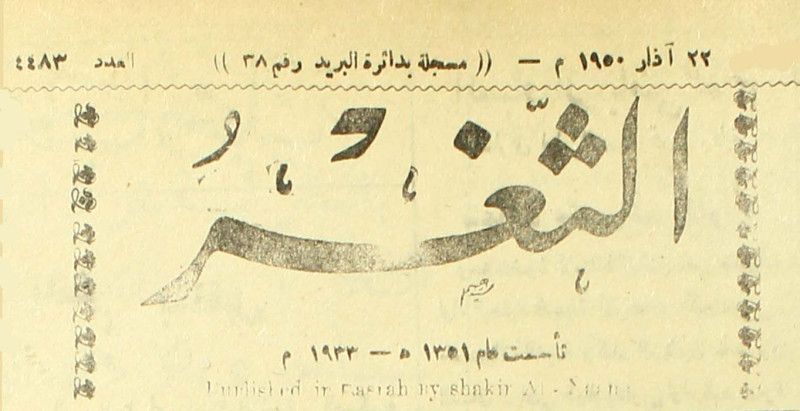 ٢٢ آذار ١٩٥٠ م — (( مسجلة بدائرة البريد رقم ٣٨ )) العدد ٤٤٨٣
الثَّغْرُ
تأسست عام ١٣٥١ ه — ١٩٣٣ م
Published in Basrah By shakir Al -